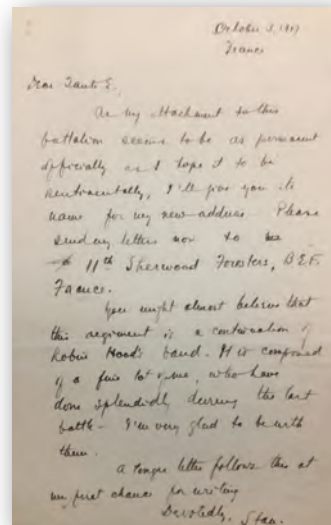 October 3, 1917
France
Dear Tante E.,
As my attachment to this
battalion seems to be as permanent
officially as I hope it to be
sentimentally, I'll give you its
name for my new address. Please
send my letters now to
11th Sherwood Foresters, B.E.F.
France.
You might almost believe that
this regiment is a continuation of
Robin Hood's band. It is composed
of a fine lot of men, who have
done splendidly during the last
battle - I'm very glad to be with
them.
A longer letter follows this at
my first chance for writing
Devotedly, Stan.